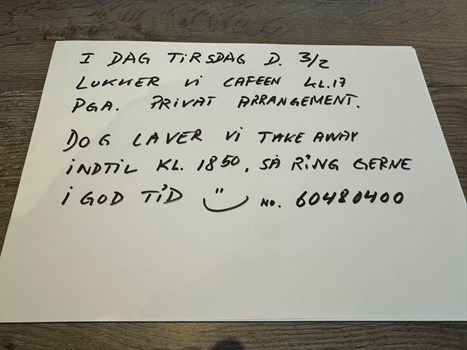 I DAG TIRSDAG D. 3/2
LUKKER VI CAFEEN KL.17
PGA. PRIVAT ARRANGEMENT.
DOG LAVER VI TAKE AWAY
INDTIL KL. 1850, SÅ RING GERNE
I GOD TID NO. 60480400